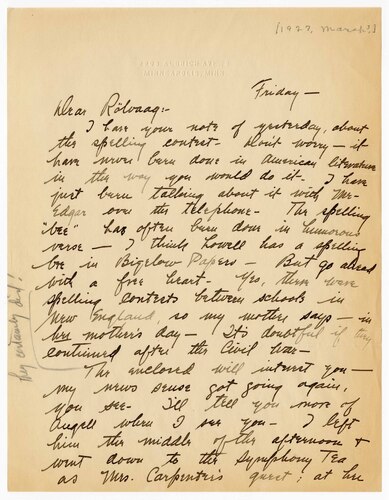 [1927, March?]
MINNEAPOLIS, MINN.
Friday —
Dear Rölvaag:-
I have your note of yesterday, about
the spelling contest. Don't worry — it
have never been done in American literature
in the way you would do it. I have
just been talking about it with Mr.
Edgar over the telephone — The spelling
"bee" has often been done in humorous
verse — I think Lowell has a spelling
bee in Bigelow Papers — But go ahead
with a free heart. Yes, there were
spelling contests between schools in
New England, so my mother says — in
her mother's day — It's doubtful if they
continued after the Civil War —
they certainly did!
The enclosed will interest you —
my news sense got going again,
you see — I'll tell you more of
Angell when I see you — I left
him the middle of the afternoon &
went down to the Symphony Tea
as Mrs. Carpenter's guest; at her